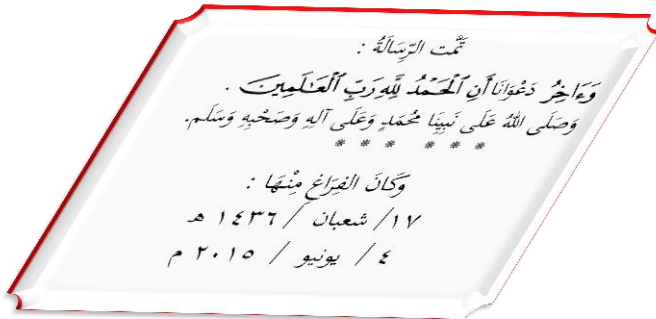 تَمَّت الرِّسَالَةُ :
وَءَاخِرُ دَعْوَانَا أَنِ ٱلْحَمْدُ لِلَّهِ رَبِّ ٱلْعَـٰلَمِينَ .
وَصَلَى اللهُ عَلَى نَبِيِّنَا مُحَمَدٍ وَعَلَى آلِهِ وَصَحْبِهِ وَسَلَم.
* * * * * *
وَكَانَ الفِرَاغ مِنْهَا :
١٧/ شعبان / ١٤٣٦ هـ
٤ / يونيو / ٢٠١٥ م